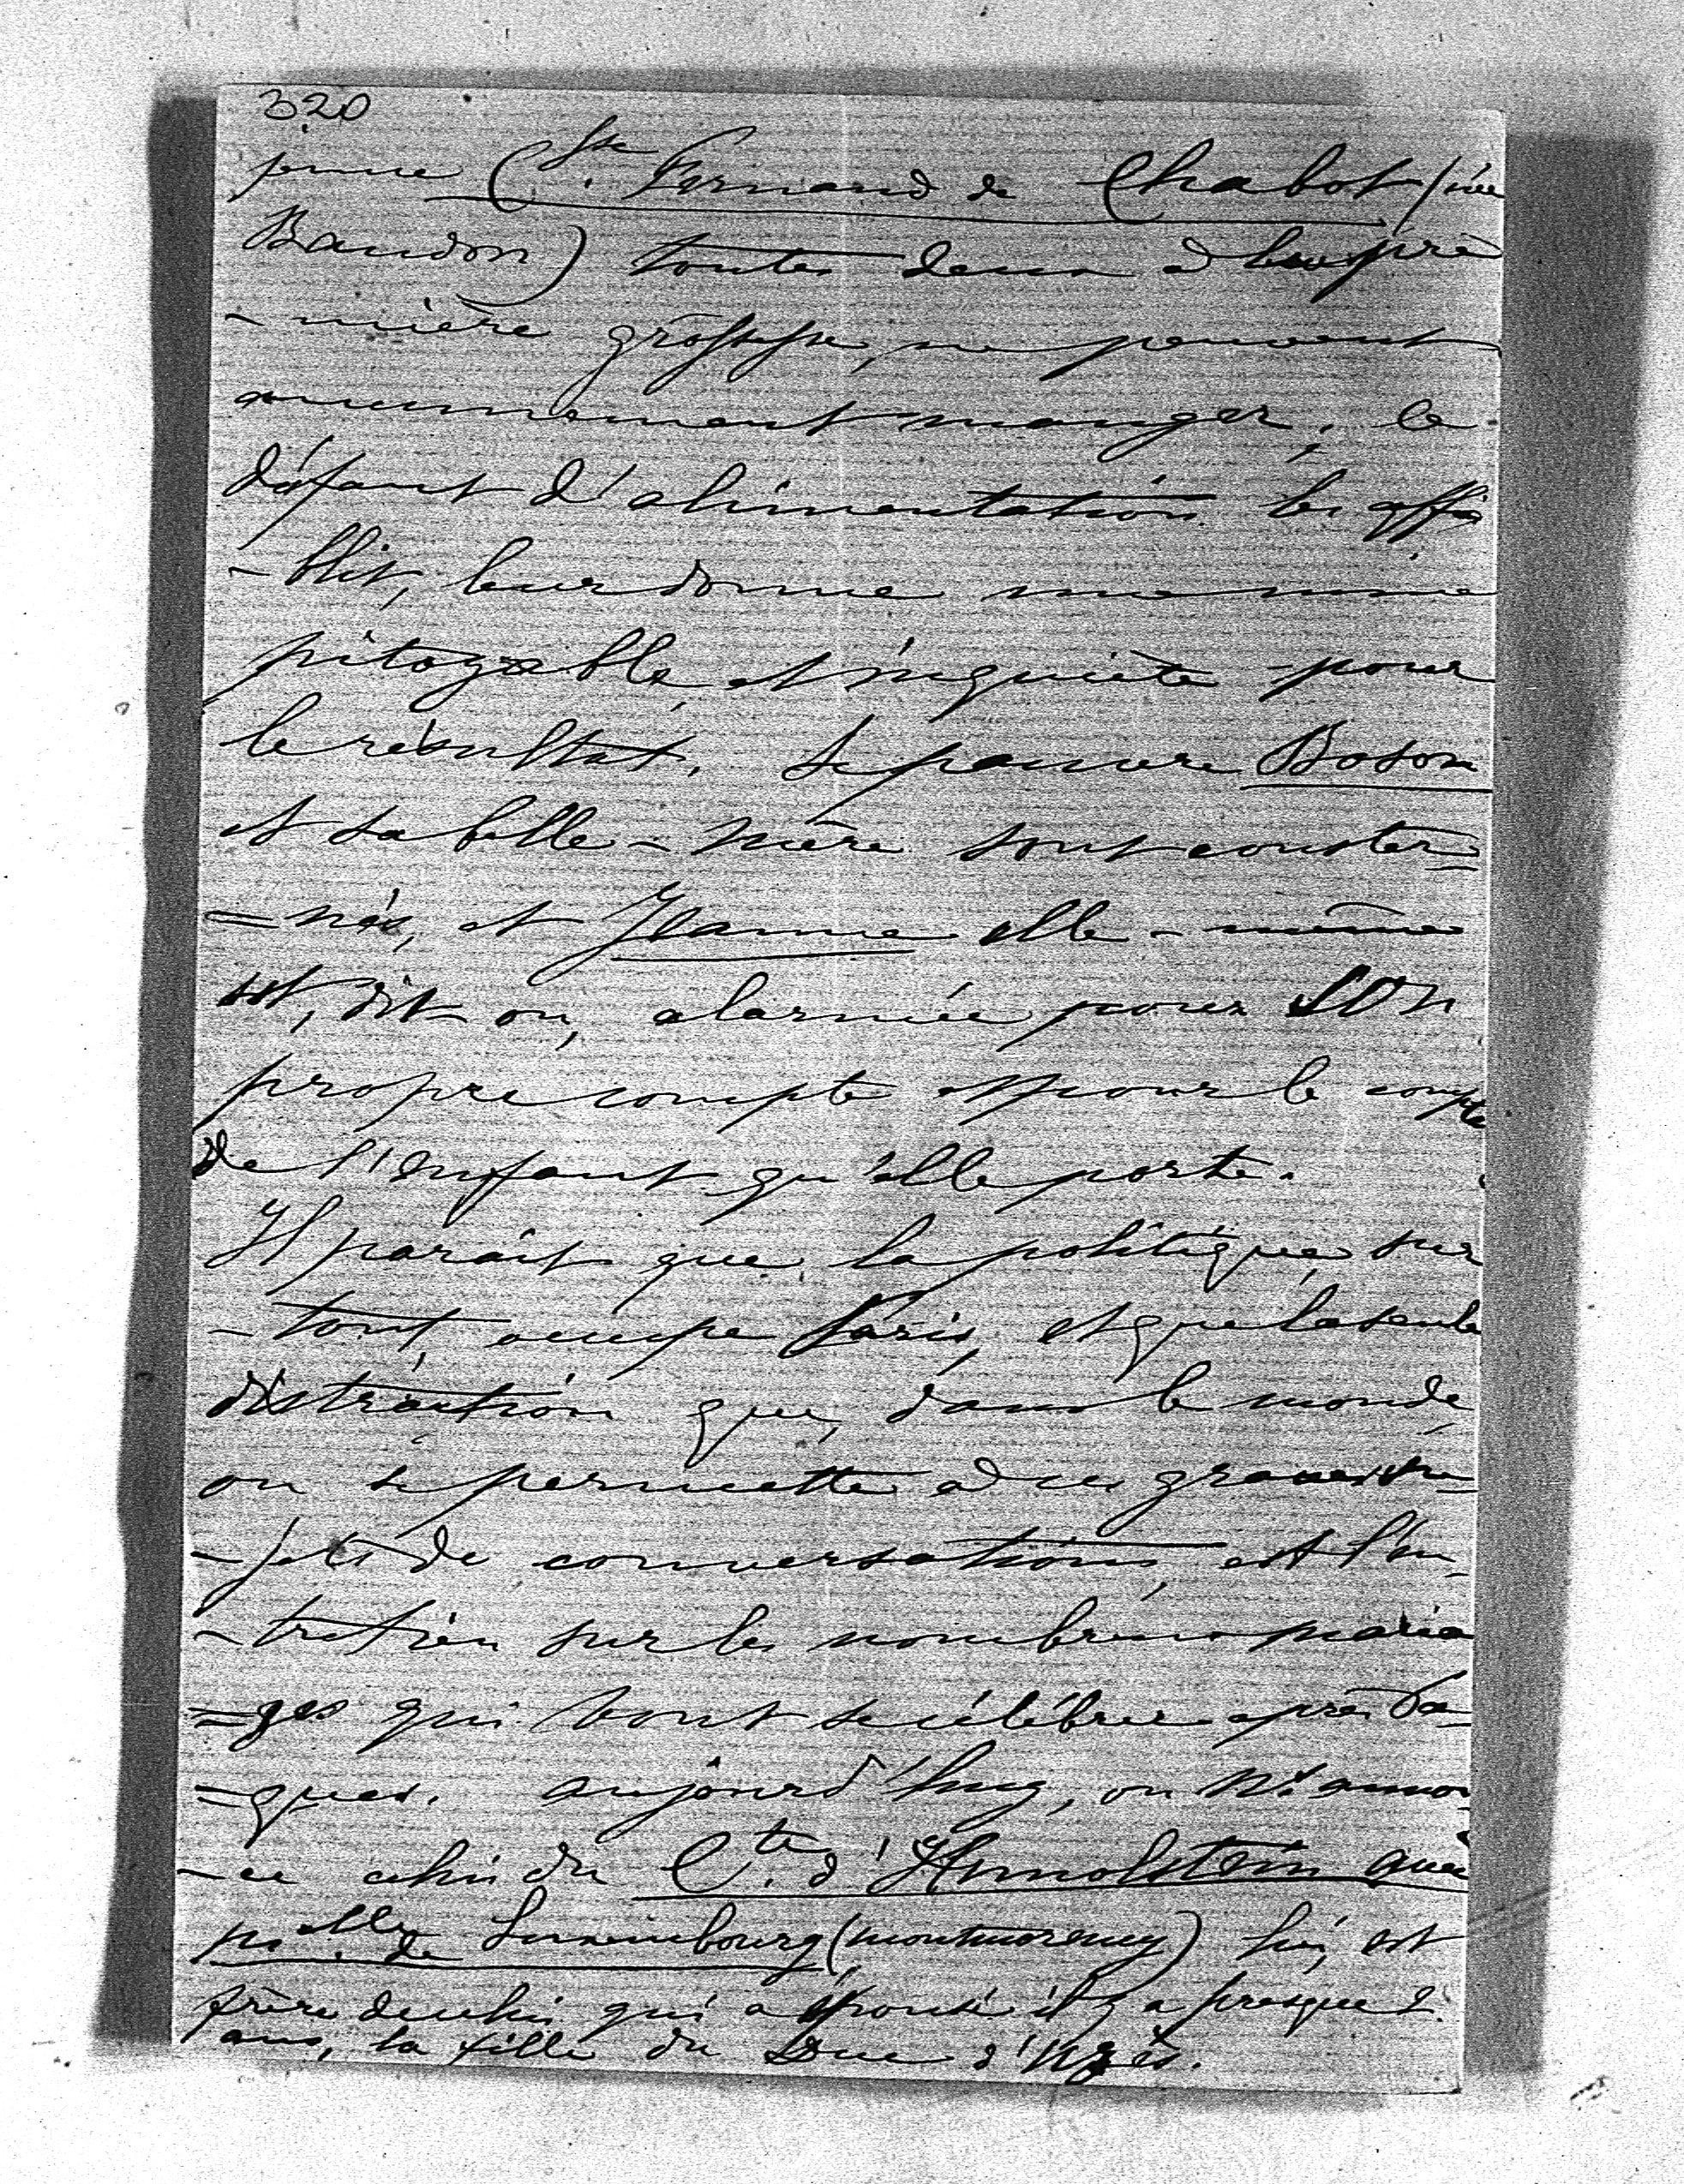 320
jeune C^sse. Fernand de Chabot (née
Baudon) toutes deux à leur pre
-mière grossesse, ne peuvent
aucunement manger; le
défaut d'alimentation les affai
-blit, leur donne une mine
pitoyable, et inquiète pour
le résultat. Le pauvre Boson
et sa belle-mère sont conster=
=nés, et Jeanne elle-même
est, dit on, alarmée pour son
propre compte et pour le compte
de l'enfant qu'elle porte.
Il parait que la politique, sur
-tout, occupe Paris, et que la seule
distraction que, dans le monde,
on se permette à ces graves su-
-jets de conversations, est l'en-
-tretien sur les nombreux maria
=ges qui vont se célébrer après Pâ=
=ques. aujourd'huy, on m'annon
-ce celui du C^te. d'Hunolstein avec
M^elle. de Luxembourg (Montmorency) lui, est
frère de celui qui a épousé il y a presque 2
ans, la fille du Duc d'Uzès.